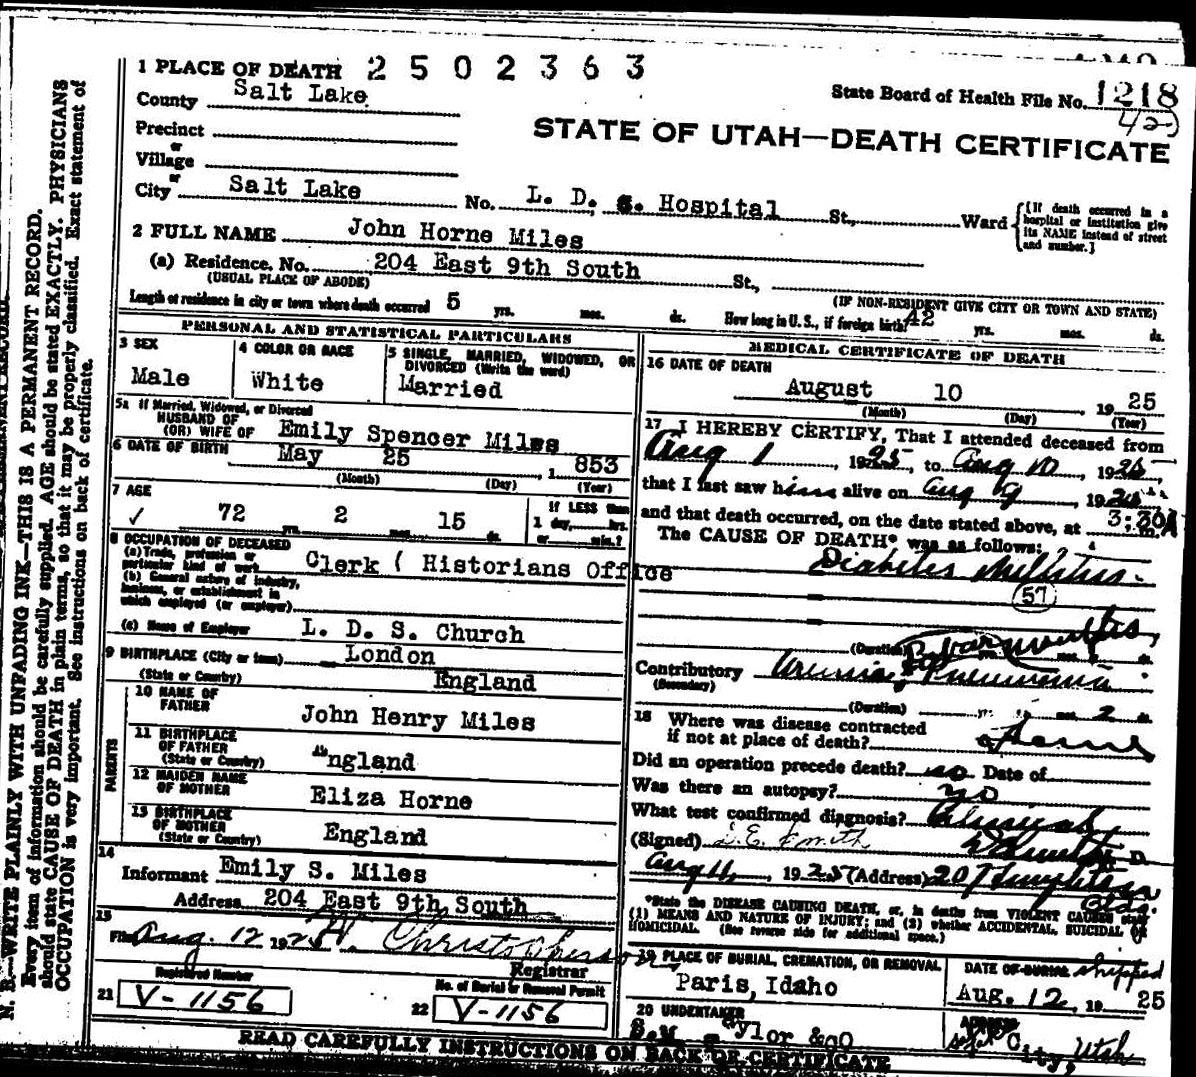 N. B.—WRITE PLAINLY WITH UNFADING INK—THIS IS A PERMANENT RECORD.
Every item of information should be carefully supplied. AGE should be stated EXACTLY. PHYSICIANS
should state CAUSE OF DEATH in plain terms, so that it may be properly classified. Exact statement of
OCCUPATION is very important. See instructions on back of certificate.
1 PLACE OF DEATH 2502363
State Board of Health File No. 1218
County Salt Lake
STATE OF UTAH—DEATH CERTIFICATE
Precinct
or
Village
or
City Salt Lake No. L. D. S. Hospital St., Ward
[If death occurred in a
hospital or institution give
its NAME instead of street
and number.]
2 FULL NAME John Horne Miles
(a) Residence. No. 204 East 9th South St.,
(USUAL PLACE OF ABODE)
(IF NON-RESIDENT GIVE CITY OR TOWN AND STATE)
Length of residence in city or town where death occurred 5 yrs. mos. ds. How long in U. S., if foreign birth? 42 yrs. mos. ds.
PERSONAL AND STATISTICAL PARTICULARS
3 SEX
Male
4 COLOR OR RACE
White
5 SINGLE, MARRIED, WIDOWED, OR
DIVORCED (Write the word)
Married
5a If Married, Widowed, or Divorced
HUSBAND OF
(OR) WIFE OF Emily Spencer Miles
6 DATE OF BIRTH May 25, 1853
(Month) (Day) (Year)
7 AGE
✓ 72 yrs. 2 mos. 15 ds.
If LESS than
1 day, hrs.
or min.?
8 OCCUPATION OF DECEASED
(a) Trade, profession or
particular kind of work Clerk ( Historians Office
(b) General nature of industry,
business, or establishment in
which employed (or employer)
(c) Name of Employer L. D. S. Church
9 BIRTHPLACE (City or town) London
(State or Country) England
PARENTS
10 NAME OF
FATHER John Henry Miles
11 BIRTHPLACE
OF FATHER
(State or Country) England
12 MAIDEN NAME
OF MOTHER Eliza Horne
13 BIRTHPLACE
OF MOTHER
(State or Country) England
14
Informant Emily S. Miles
Address 204 East 9th South
15
Filed Aug. 12 1925 Christopherson
Registrar
Registered Number
21 V-1156
No. of Burial or Removal Permit
22 V-1156
MEDICAL CERTIFICATE OF DEATH
16 DATE OF DEATH
August 10 1925
(Month) (Day) (Year)
17 I HEREBY CERTIFY, That I attended deceased from
Aug 1, 1925, to Aug 10, 1925
that I last saw him alive on Aug 9, 1925
and that death occurred, on the date stated above, at 3:30A
The CAUSE OF DEATH* was as follows:
Diabetes Mellitus.
57
(Duration) yrs. mos. ds.
Contributory Uremia & Pneumonia
(Secondary)
(Duration) yrs. mos. 2 ds.
18 Where was disease contracted
if not at place of death? Home
Did an operation precede death? no Date of
Was there an autopsy? no
What test confirmed diagnosis? Clinical
(Signed) D.
Aug 11, 1925 (Address) 207
*State the DISEASE CAUSING DEATH, or, in deaths from VIOLENT CAUSES state
(1) MEANS AND NATURE OF INJURY; and (2) whether ACCIDENTAL, SUICIDAL OR
HOMICIDAL. (See reverse side for additional space.)
19 PLACE OF BURIAL, CREMATION, OR REMOVAL
Paris, Idaho
DATE OF BURIAL shipped
Aug. 12, 1925
20 UNDERTAKER
ADDRESS
City, Utah
READ CAREFULLY INSTRUCTIONS ON BACK OF CERTIFICATE